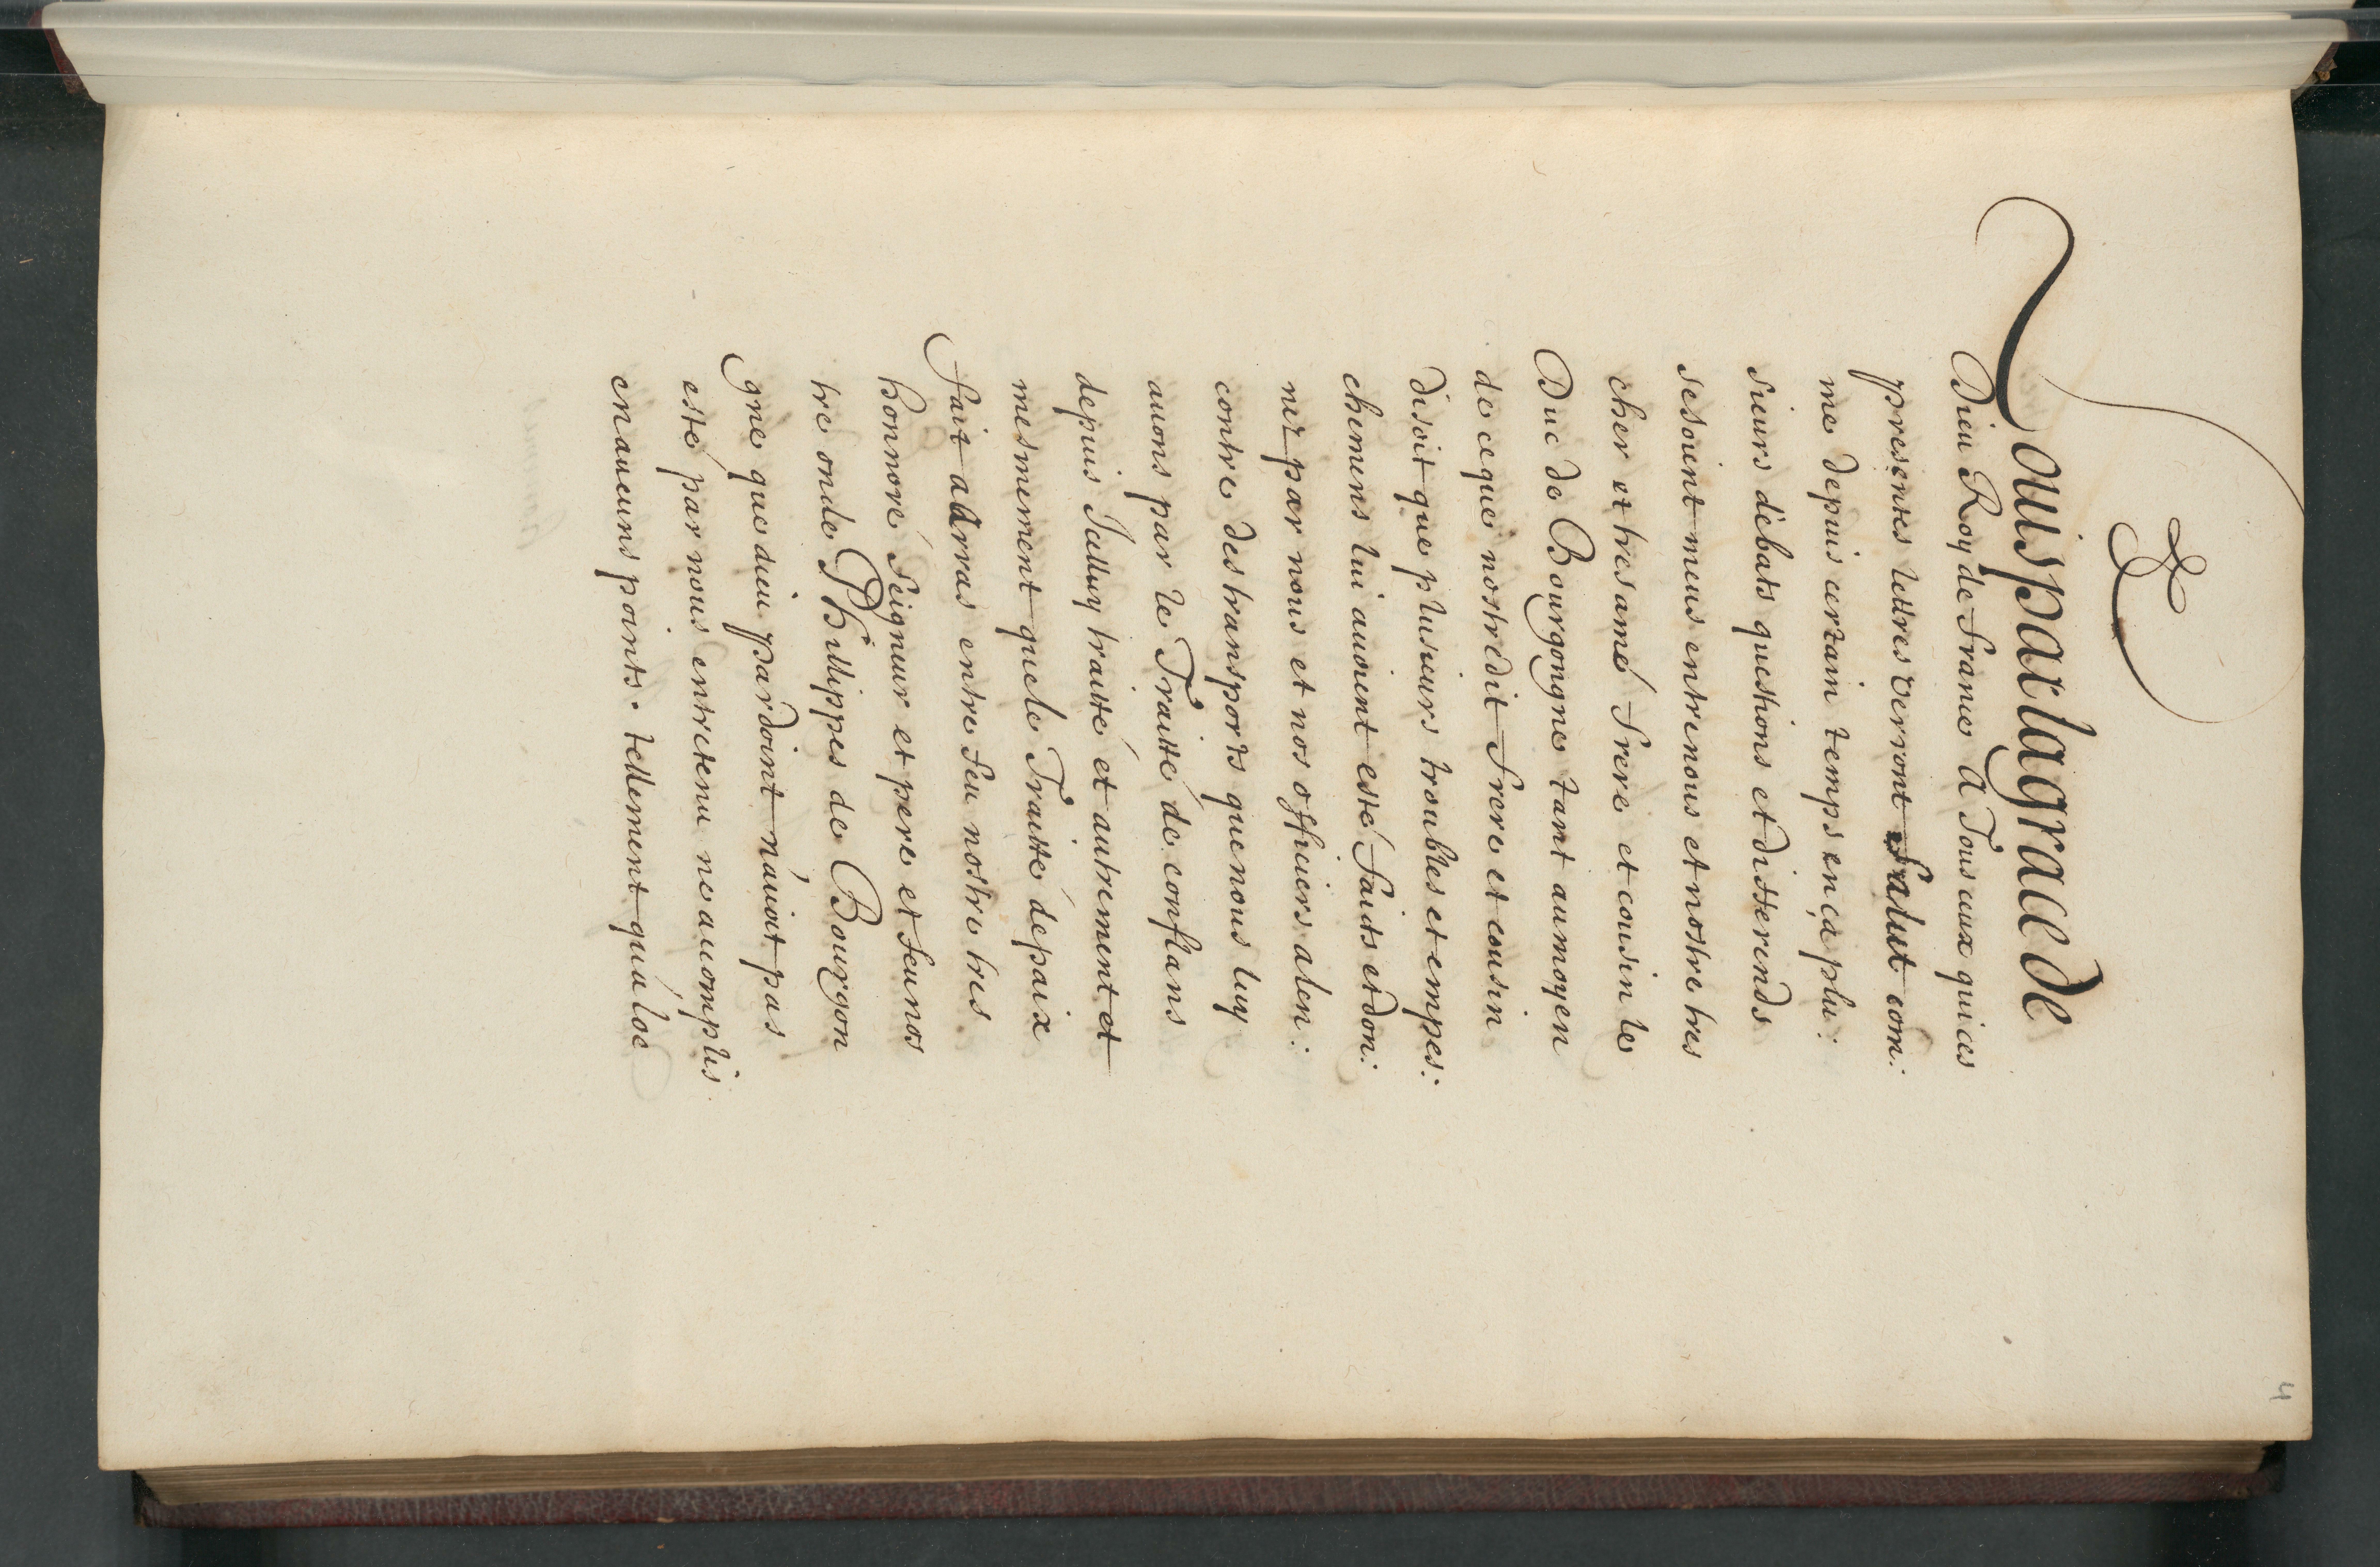 4
Louis par la grace de
Dieu Roy de France A Tous ceux qui ces
presentes lettres verront Salut com:
me depuis certain temps en ça plu:
sieurs debats questions et differends
se soient meus entre nous et nostre tres
cher et tres amé frere et cousin le
Duc de Bourgongne tant au moyen
de ce que nostredit frere et cousin
disoit que plusieurs troubles et empes:
chemens lui auoient esté faits et don:
nez par nous et nos officiers alen:
contre des transports que nous luy
auons par le Traitté de conflans
depuis Icelluy traitté et autrement et
mesmement que le Traitté de paix
fait a Arras entre feu nostre tres
honnoré seigneur et pere et feu nos
tre oncle Phillippes de Bourgon
gne que dieu pardoint n'auoit pas
esté par nous entretenu ne accomplis
en aucuns points. tellement qua loc